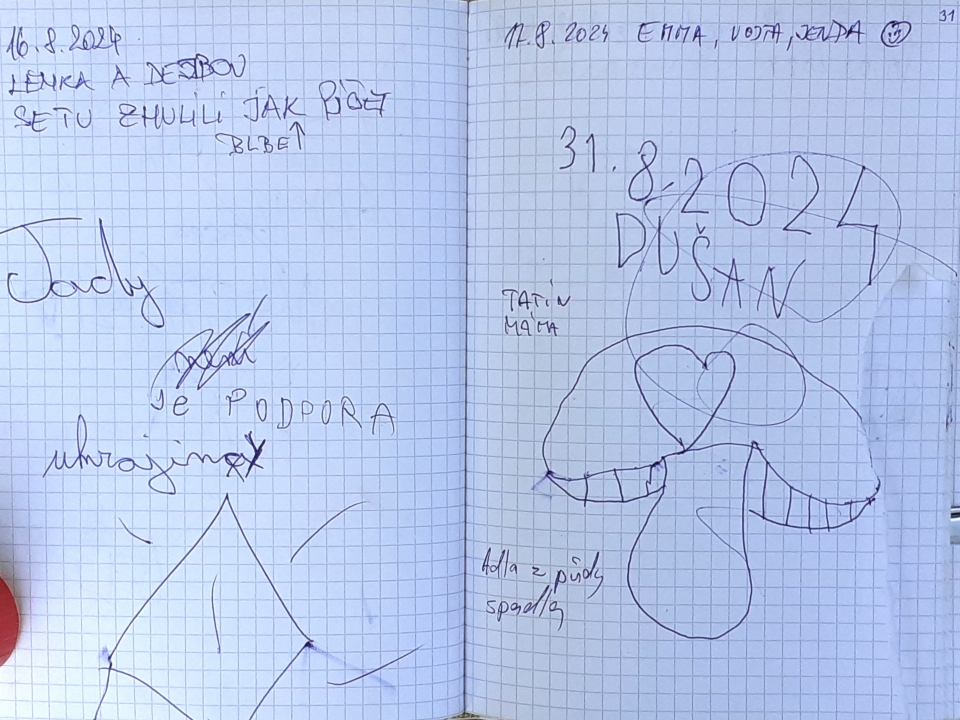 16.8.2024
LENKA A
SE TU ZHULILI JAK
BLBE↑
Tady
je PODPORA
ukrajiny
31
17.8.2024 EMMA, VOJTA, JENDA
31.8.2024
DUŠAN
TATÍN
MÁMA
Adla z půdy
spadla